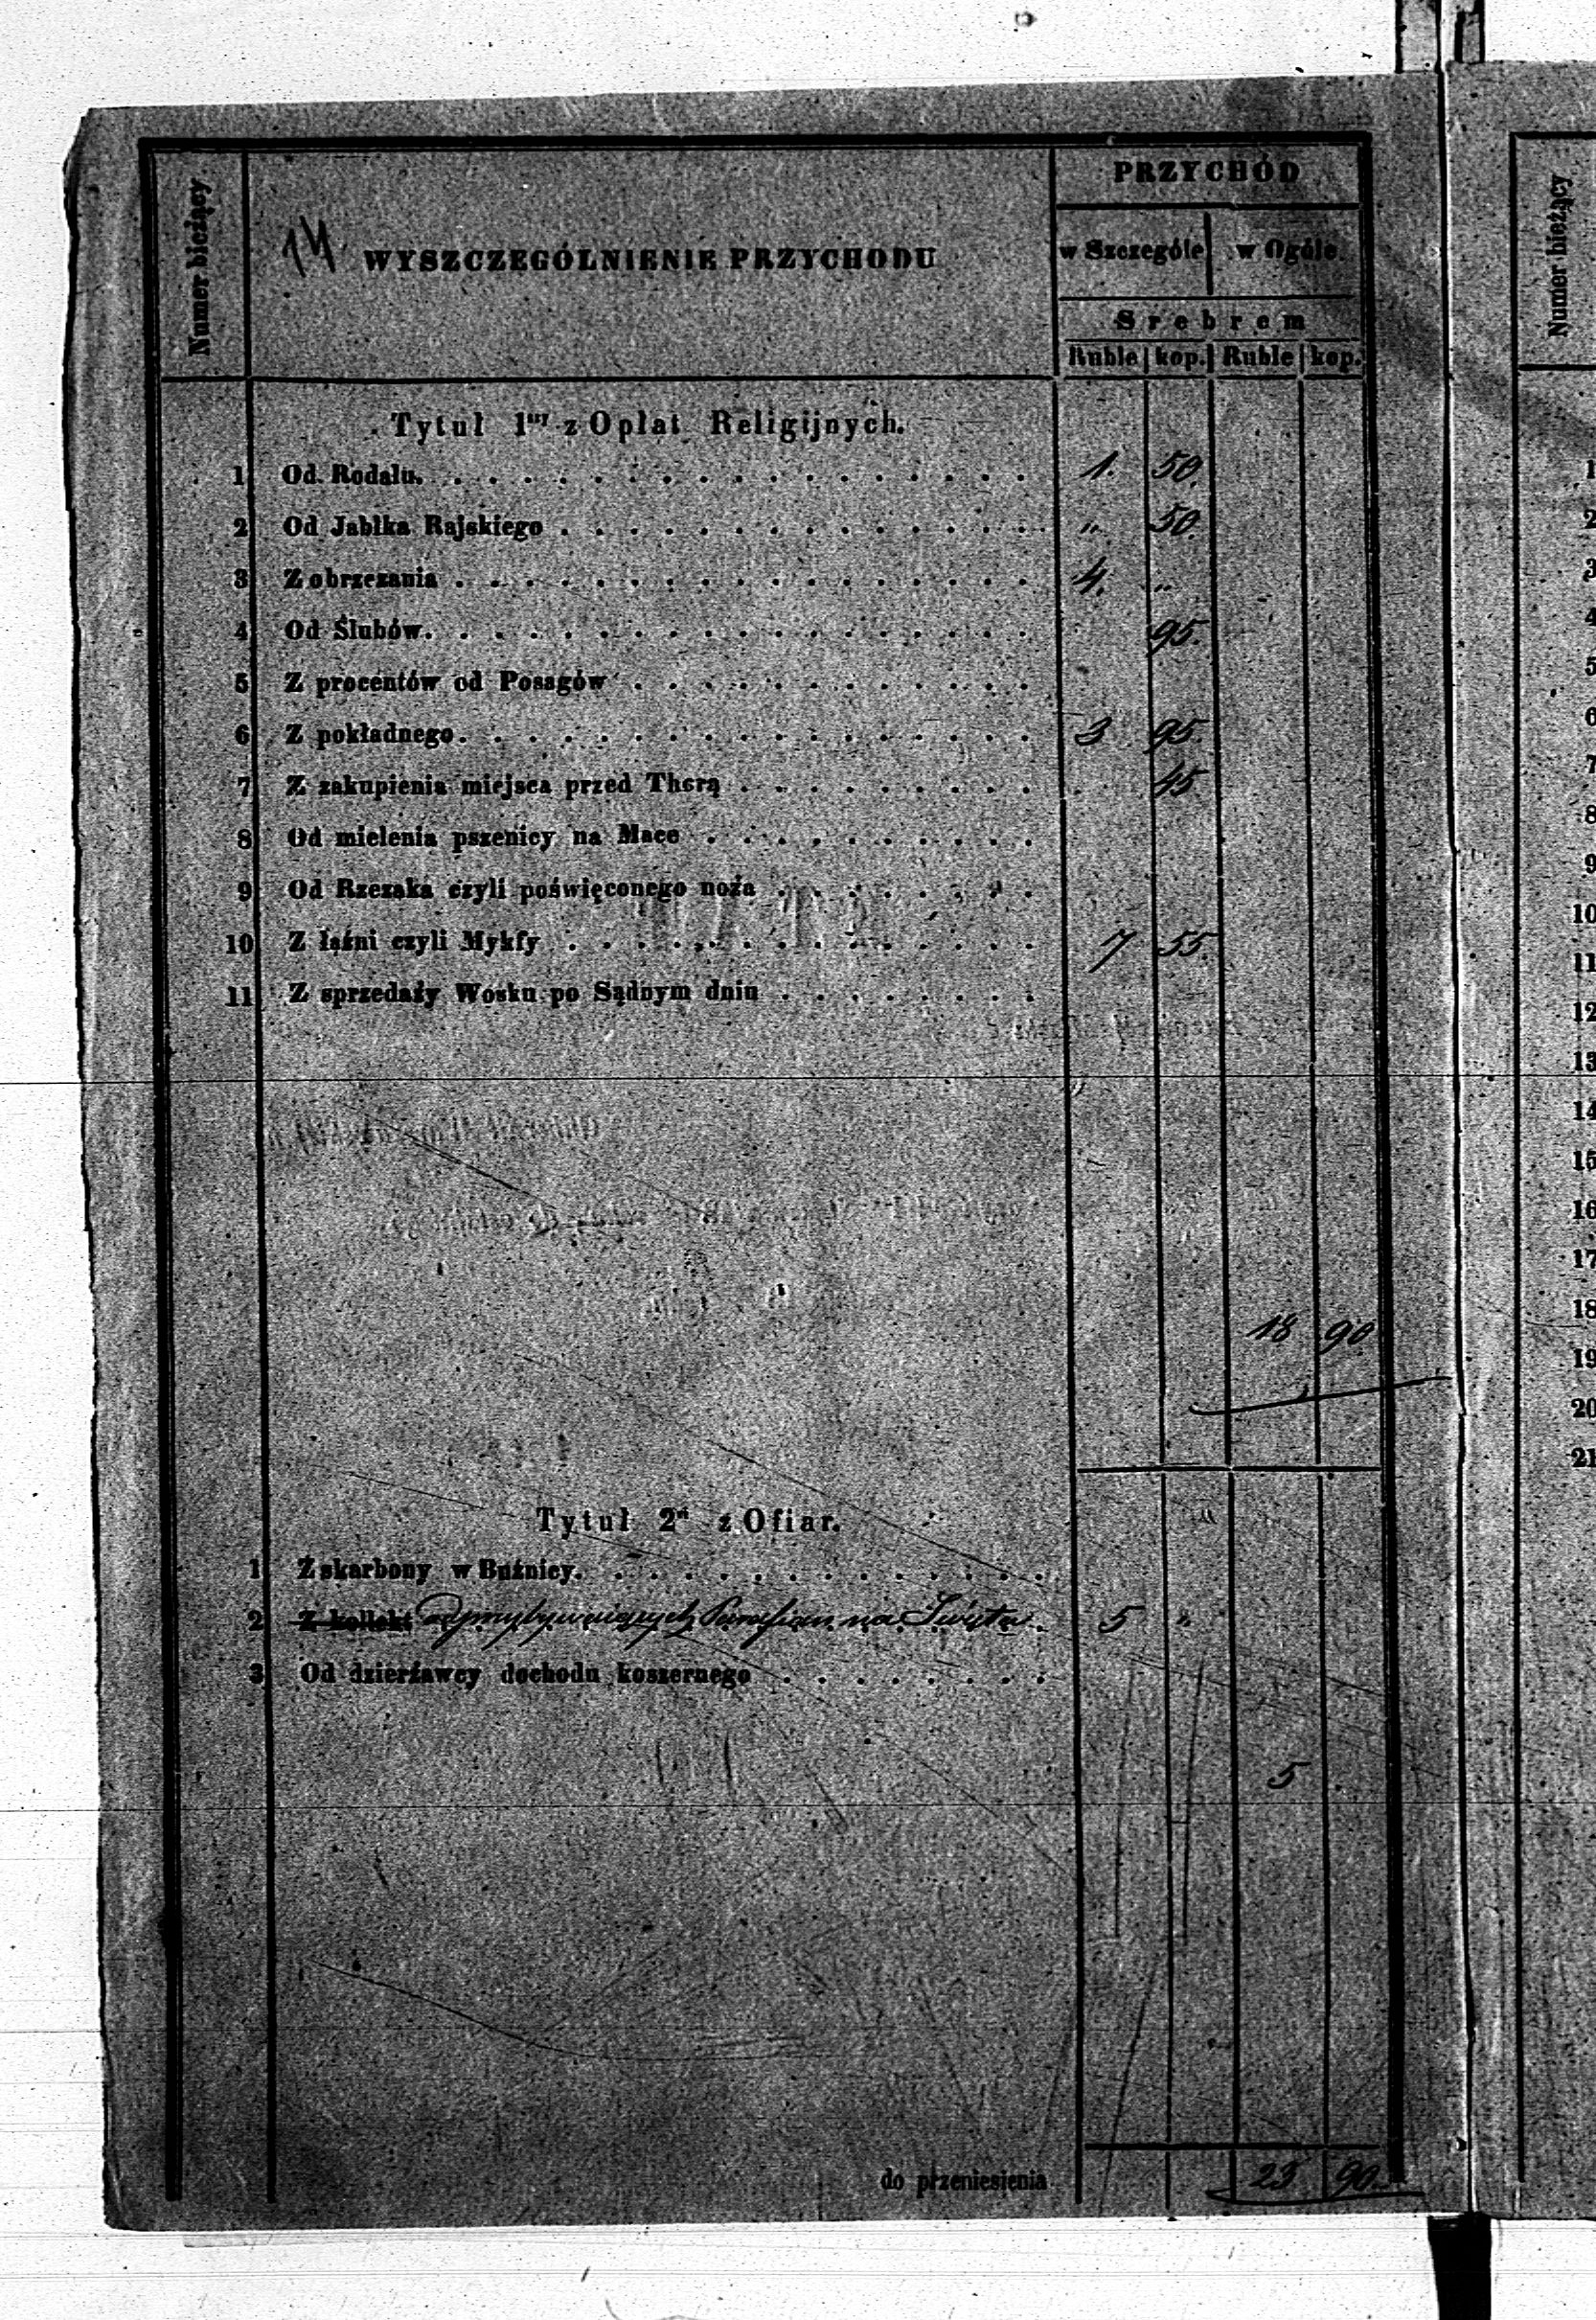 Numer bieżący
14
WYSZCZEGÓLNIENIE PRZYCHODU
PRZYCHÓD
w Szczególe w Ogóle
Srebrem
Ruble kop. Ruble kop.
Tytuł 1szy z Opłat Religijnych.
1 Od Rodału. 1. 50.
2 Od Jabłka Rajskiego „ 50.
3 Z obrzezania 4. „
4 Od Ślubów. 95.
5 Z procentów od Posagów
6 Z pokładnego. 3 95.
7 Z zakupienia miejsca przed Thorą 45
8 Od mielenia pszenicy na Mace
9 Od Rzezaka czyli poświęconego noża
10 Z łaźni czyli Mykfy 7 55.
11 Z sprzedaży Wosku po Sądnym dniu
18 90
Tytuł 2gi z Ofiar.
1 Z skarbony w Bużnicy.
2 Z kollekt od przybywaiących Parafian na Święta 5 „
3 Od dzierżawcy dochodu koszernego
5
do przeniesienia 23 90.
Numer bieżący
1
2
3
4
5
6
7
8
9
10
11
12
13
14
15
16
17
18
19
20
21